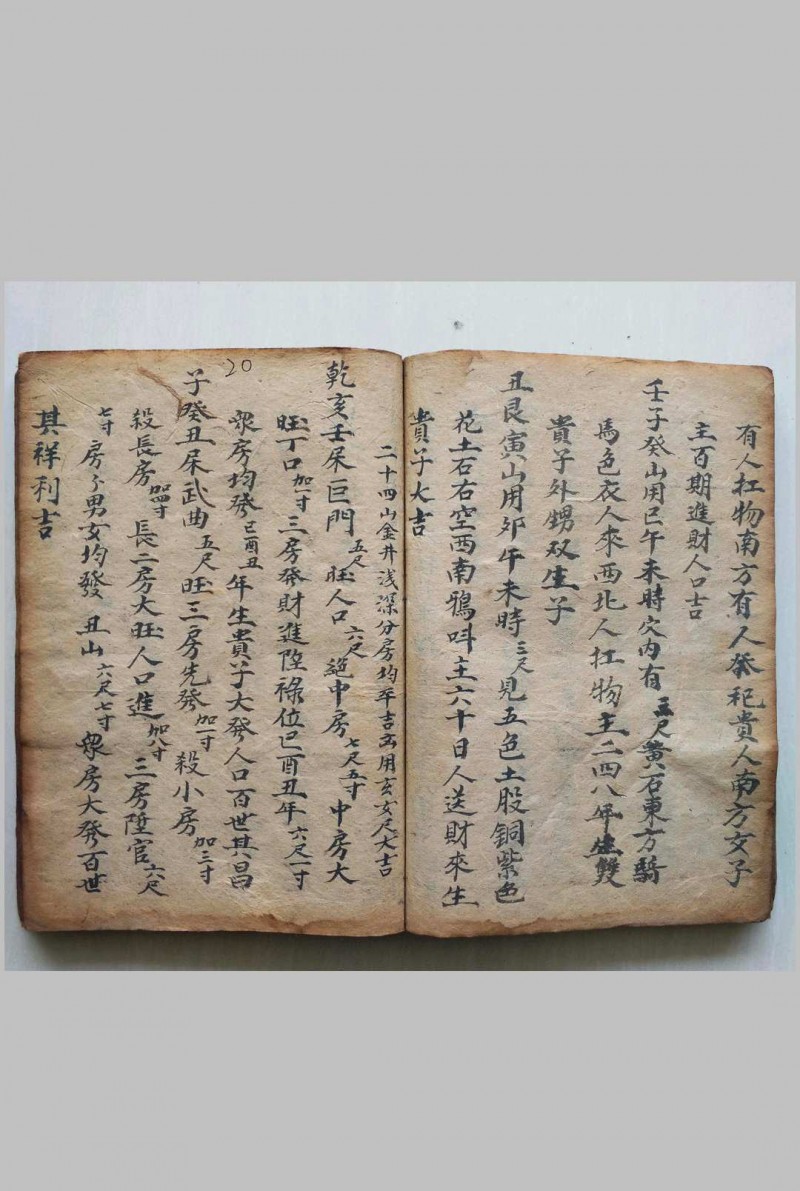 有人扛物南方有人癸祀貴人南方文子
主百期進財人口吉
壬子癸山用巳午未時穴内有三尺黄石東方騎
馬色衣人來西北人扛物主二四八年生雙
貴子外甥双生子
丑艮寅山用卯午未時三尺見五色土股銅紫色
花土石右空西南鴉呌主六十日人送財來生
貴子大吉
二十四山金井浅深分房均平吉玄用玄女尺大吉
20
乾亥壬屎巨門五尺旺人口六尺迯中房七尺五寸中房大
旺丁口加一寸三房發財進陞祿位巳酉丑年六尺一寸
衆房均發巳酉丑年生貴子大發人口百世其昌
子癸丑屎武曲五尺旺三房先發加一寸殺小房加三寸
殺長房加四寸長二房大旺人口進加八寸三房陞官六尺
七寸房分男女均發丑山六尺七寸衆房大發百世
其祥利吉